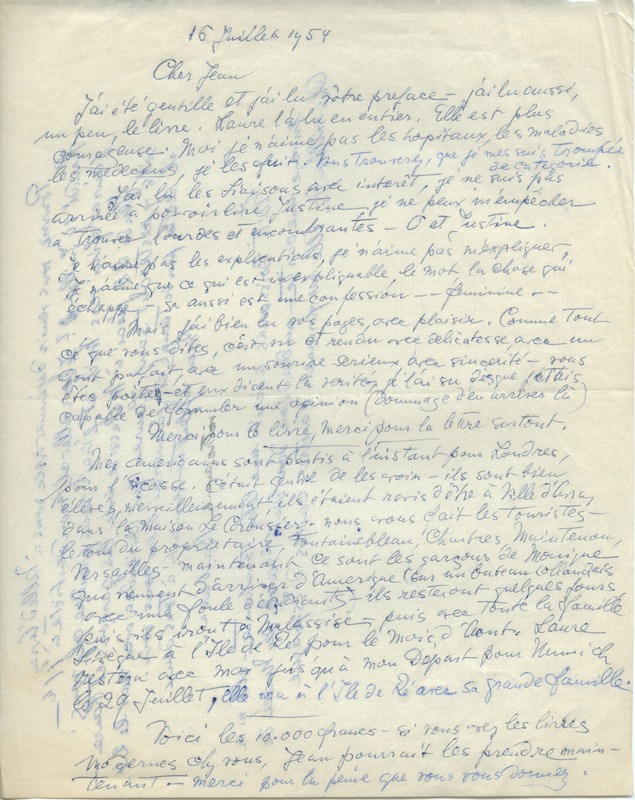 16 Juillet 1954
Cher Jean
J'ai été gentille et j'ai lu vôtre preface – j'ai lu aussi,
un peu, le livre. Laure l'a lu en entier. Elle est plus
courageuse. Moi je n'aime pas les hopitaux, les maladies
les medecins, je les fuit. Vous trouverez, que je me suis trompée
de categorie.
J'ai lu les Liaisons avec interêt, je ne suis pas
arrivée a pouvoir lire Justine, je ne peux m'empêcher
a trouver lourdes et encombrantes – O et Justine.
Je n'aime pas les explications, je n'aime pas m'expliquer,
Je n'aime que ce qui est inexpliquable, le mot la chose qui
échappe – ça aussi est une confession – feminine –
Mais j'ai bien lu vos pages, avec plaisir. Comme tout
ce que vous dites, c'est vu et rendu avec delicatesse, avec un
gout parfait, avec un sourire serieux avec sincerité – vous
êtes poète – et eux disent la verité, je l'ai su dès que j'étais
capable de formuler une opinion (dommage d'en arriver là)
Merci pour le livre, merci pour la lettre surtout.
Mes americains sont partis à l'instant pour Londres,
pour l'Ecosse. C'était gentil de les avoir – ils sont bien
élevés, merveilleusement – ils étaient ravis d'être a Ville d'Avray
dans la maison Le Corbusier – nous avons fait les touristes –
le tour du propriétaire, Fontainebleau, Chartres, Maintenon,
Versailles – maintenant ce sont les garçons de Monique
qui viennent d'arriver d'Amerique (sur un bateau Hollandais
avec une foule d'étudiants) ils resteront quelques jours
puis ils iront a Malassise, puis avec toute la famille
à l'Ile de Ré pour le mois d'Aout. Laure
restera avec moi jusqu'à mon Départ pour Munich
le 29 Juillet, elle ira a l'Ile de Ré avec sa grande famille.
Voici les 10.000 francs – si vous avez les livres
modernes chez vous, Jean pourrait les prendre main-
tenant – merci pour la peine que vous vous donnez.